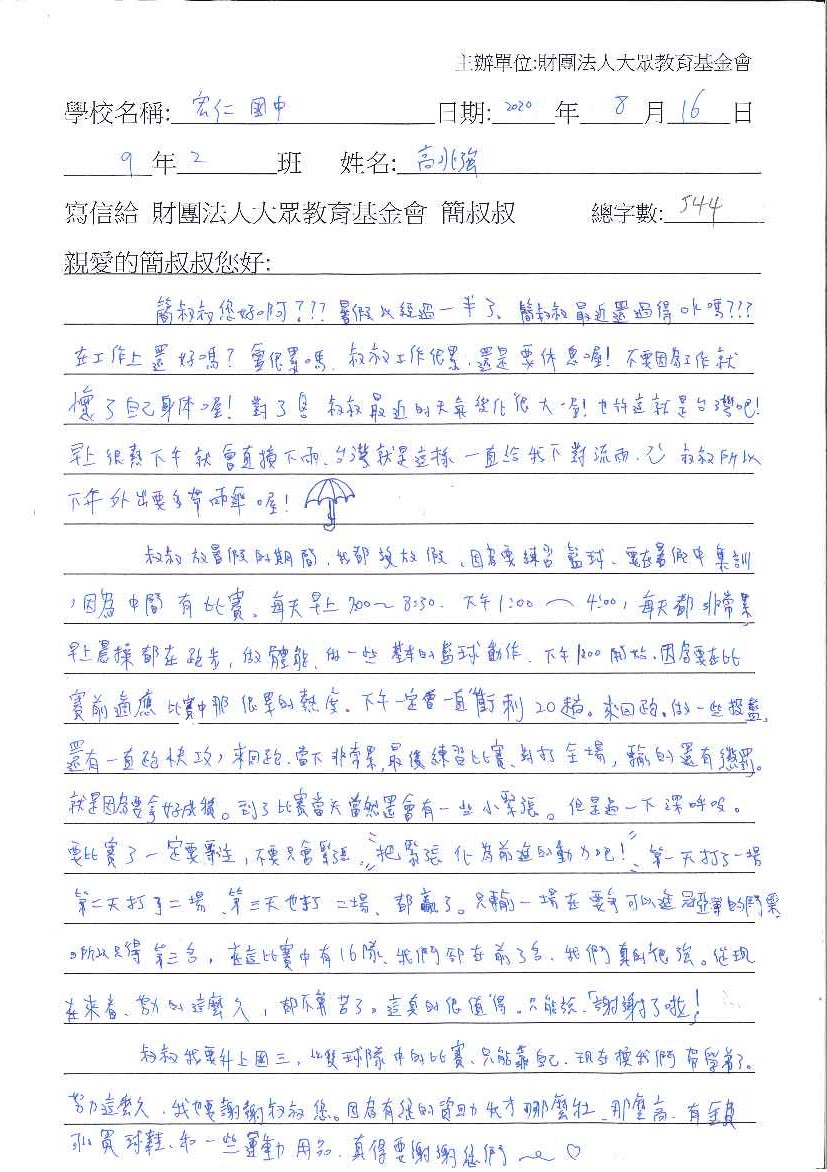 主辦單位:財團法人大眾教育基金會
學校名稱: 宏仁國中 日期: 2020 年 8 月 16 日
9 年 2 班 姓名: 高兆強
寫信給 財團法人大眾教育基金會 簡叔叔 總字數: 544
親愛的簡叔叔您好:
簡叔叔您好啊???暑假以經過一半了、簡叔叔最近還過得ok嗎???
在工作上還好嗎?會很累嗎、叔叔工作很累、還是要休息喔!不要因為工作就
壞了自己身体喔!對了 叔叔最近的天氣變化很大喔!也許這就是台灣吧!
早上很熱下午就會直接下雨、台灣就是這樣一直給我下對流雨、 叔叔所以
下午外出要多帶雨傘喔!
叔叔放暑假的期間、我都沒放假、因為要練習籃球、要在暑假中集訓
,因為中間有比賽。每天早上7:00~8:30、下午1:00~4:00,每天都非常累
早上晨操都在跑步,做體能、做一些基本的籃球動作、下午1:00開始、因為要在比
賽前適應比賽中那很累的熱度。下午一定會一直衝刺20趟。來回跑。做一些投籃,
還有一直跑快攻,來回跑、當下非常累,最後練習比賽、對打全場,輸的還有懲罰。
就是因為要拿好成績。到了比賽當天當然還會有一些小緊張。但是過一下深呼吸。
要比賽了一定要專注,不要只會緊張,把緊張化為前進的動力吧!第一天打了一場
第二天打了二場、第三天也打二場、都贏了。只輸一場在要爭可以進冠亞軍的門票
。所以只得第三名,在這比賽中有16隊、我們卻在前3名、我們真的很強。從現
在來看、努力的這麼久,都不算苦了。這真的很值得。只能說、「謝謝了啦!
叔叔我要升上國三、 球隊中的比賽、只能靠自己、現在換我們帶學弟了。
努力這麼久、我也要謝謝叔叔您。因為有您的資助我才那麼壯、那麼高、有錢
買球鞋、和一些運動用品、真得要謝謝您們~~♡